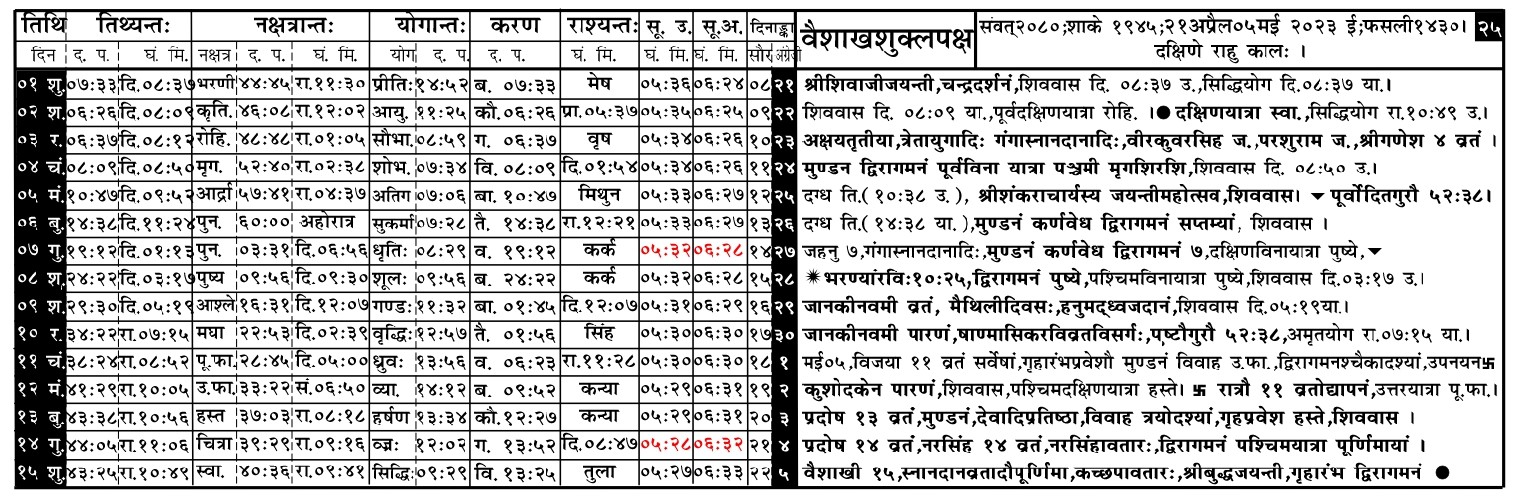 तिथि तिथ्यन्तः नक्षत्रान्तः योगान्तः करण राश्यन्तः सू. उ. सू.अ. दिनाङ्का वैशाखशुक्लपक्ष संवत्२०८०;शाके १९४५;२१अप्रैल०५मई २०२३ ई;फसली१४३०। २५
दिन द. प. घं. मि. नक्षत्र द. प. घं. मि. योग द. प. द. प. घं. मि. घं. मि. घं. मि. सौर अंग्रेजी दक्षिणे राहु कालः ।
०१ शु. ०७:३३ दि.०८:३७ भरणी ४४:४५ रा.११:३० प्रीतिः १४:५२ ब. ०७:३३ मेष ०५:३६ ०६:२४ ०८ २१ श्रीशिवाजीजयन्ती,चन्द्रदर्शनं,शिववास दि. ०८:३७ उ.,सिद्धियोग दि.०८:३७ या.।
०२ श. ०६:२६ दि.०८:०९ कृति. ४६:०८ रा.१२:०२ आयु. ११:२५ कौ.०६:२६ प्रा.०५:३७ ०५:३५ ०६:२५ ०९ २२ शिववास दि. ०८:०९ या.,पूर्वदक्षिणयात्रा रोहि. ।● दक्षिणयात्रा स्वा.,सिद्धियोग रा.१०:४९ उ.।
०३ र. ०६:३७ दि.०८:१२ रोहि. ४८:४८ रा.०१:०५ सौभा. ०८:५९ ग. ०६:३७ वृष ०५:३४ ०६:२६ १० २३ अक्षयतृतीया,त्रेतायुगादिः गंगास्नानदानादिः,वीरकुवरसिंह ज.,परशुराम ज.,श्रीगणेश ४ व्रतं ।
०४ चं. ०८:०९ दि.०८:५० मृग. ५२:४० रा.०२:३८ शोभ. ०७:३४ वि. ०८:०९ दि.०१:५४ ०५:३४ ०६:२६ ११ २४ मुण्डन द्विरागमनं पूर्वविना यात्रा पञ्चमी मृगशिरशि,शिववास दि. ०८:५० उ.।
०५ मं. १०:४७ दि.०९:५२ आर्द्रा ५७:४१ रा.०४:३७ अतिग ०७:०६ बा. १०:४७ मिथुन ०५:३३ ०६:२७ १२ २५ दग्ध ति.(१०:३८ उ.), श्रीशंकराचार्यस्य जयन्तीमहोत्सव,शिववास। ▾ पूर्वोदितगुरौ ५२:३८।
०६ बु. १४:३८ दि.११:२४ पुन. ६०:०० अहोरात्र सुकर्मा ०७:२८ तै. १४:३८ रा.१२:२१ ०५:३३ ०६:२७ १३ २६ दग्ध ति.(१४:३८ या.),मुण्डनं कर्णवेध द्विरागमनं सप्तम्यां, शिववास ।
०७ गु. १९:१२ दि.०१:१३ पुन. ०३:३१ दि.०६:५६ धृतिः ०८:२९ व. १९:१२ कर्क ०५:३२ ०६:२८ १४ २७ जहनु ७,गंगास्नानदानादिः,मुण्डनं कर्णवेध द्विरागमनं ७,दक्षिणविनायात्रा पुष्ये,▾
०८ शु. २४:२२ दि.०३:१७ पुष्य ०९:५६ दि.०९:३० शूलः ०९:५६ ब. २४:२२ कर्क ०५:३२ ०६:२८ १५ २८ ✷भरण्यांरविः१०:२५,द्विरागमनं पुष्ये,पश्चिमविनायात्रा पुष्ये,शिववास दि.०३:१७ उ.।
०९ श. २९:३० दि.०५:१९ आश्ले १६:३१ दि.१२:०७ गण्डः ११:३२ बा. ०१:४५ दि.१२:०७ ०५:३१ ०६:२९ १६ २९ जानकीनवमी व्रतं, मैथिलीदिवसः,हनुमद्ध्वजदानं,शिववास दि.०५:१९या.।
१० र. ३४:२२ रा.०७:१५ मघा २२:५३ दि.०२:३९ वृद्धिः १२:५७ तै. ०१:५६ सिंह ०५:३० ०६:३० १७ ३० जानकीनवमी पारणं,षाण्मासिकरविव्रतविसर्गः,पष्टौगुरौ ५२:३८,अमृतयोग रा.०७:१५ या.।
११ चं. ३८:२४ रा.०८:५२ पू.फा. २८:४५ दि.०५:०० ध्रुवः १३:५६ व. ०६:२३ रा.११:२८ ०५:३० ०६:३० १८ १ मई०५,विजया ११ व्रतं सर्वेषां,गृहारंभप्रवेशौ मुण्डनं विवाह उ.फा.,द्विरागमनश्चैकादश्यां,उपनयन卐
१२ मं. ४१:२९ रा.१०:०५ उ.फा. ३३:२२ सं.०६:५० व्या. १४:१२ ब. ०९:५२ कन्या ०५:२९ ०६:३१ १९ २ कुशोदकेन पारणं,शिववास,पश्चिमदक्षिणयात्रा हस्ते। 卐 रात्रौ ११ व्रतोद्यापनं,उत्तरयात्रा पू.फा.।
१३ बु. ४३:३८ रा.१०:५६ हस्त ३७:०३ रा.०८:१८ हर्षण १३:३४ कौ.१२:२७ कन्या ०५:२९ ०६:३१ २० ३ प्रदोष १३ व्रतं,मुण्डनं,देवादिप्रतिष्ठा,विवाह त्रयोदश्यां,गृहप्रवेश हस्ते,शिववास ।
१४ गु. ४४:०५ रा.११:०६ चित्रा ३९:२९ रा.०९:१६ व्ज्रः १२:०२ ग. १३:५२ दि.०८:४७ ०५:२८ ०६:३२ २१ ४ प्रदोष १४ व्रतं,नरसिंह १४ व्रतं,नरसिंहावतारः,द्विरागमनं पश्चिमयात्रा पूर्णिमायां ।
१५ शु. ४३:२५ रा.१०:४९ स्वा. ४०:३६ रा.०९:४१ सिद्धिः ०९:२९ वि. १३:२५ तुला ०५:२७ ०६:३३ २२ ५ वैशाखी १५,स्नानदानव्रतादौपूर्णिमा,कच्छपावतारः,श्रीबुद्धजयन्ती,गृहारंभ द्विरागमनं ●